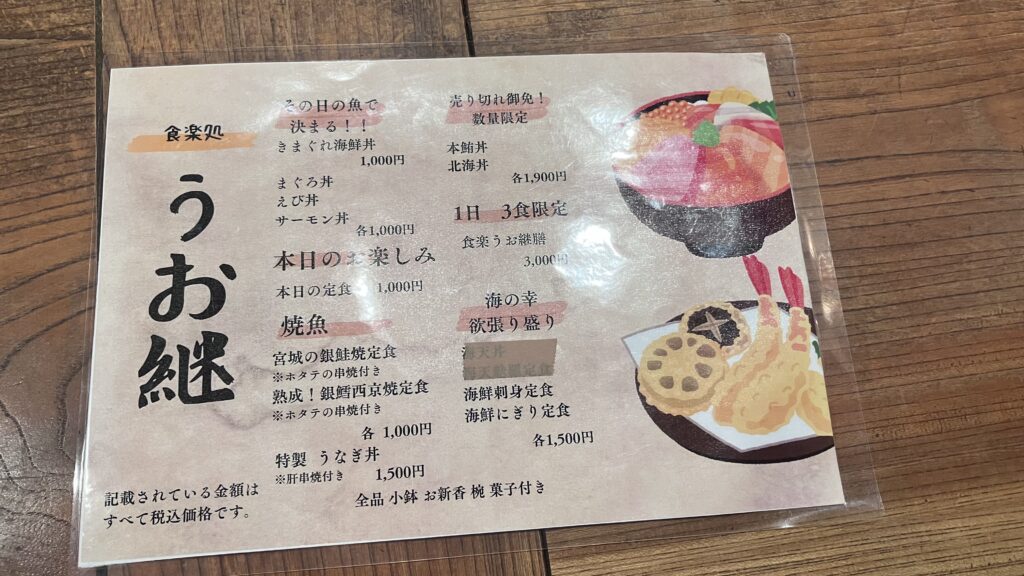 食楽処
うお継
その日の魚で
決まる！！
きまぐれ海鮮丼
1,000円
まぐろ丼
えび丼
サーモン丼
各1,000円
本日のお楽しみ
本日の定食 1,000円
焼魚
宮城の銀鮭焼定食
※ホタテの串焼付き
熟成！銀鱈西京焼定食
※ホタテの串焼付き
各 1,000円
特製 うなぎ丼
※肝串焼付き 1,500円
売り切れ御免！
数量限定
本鮪丼
北海丼
各1,900円
1日 3食限定
食楽うお継膳
3,000円
海の幸
欲張り盛り
海鮮刺身定食
海鮮にぎり定食
各1,500円
全品 小鉢 お新香 椀 菓子付き
記載されている金額は
すべて税込価格です。